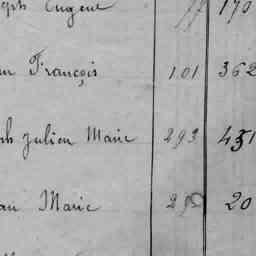 eph Eugene 170
an François 101 362
ph Julien Marie 293 451
an Marie 20